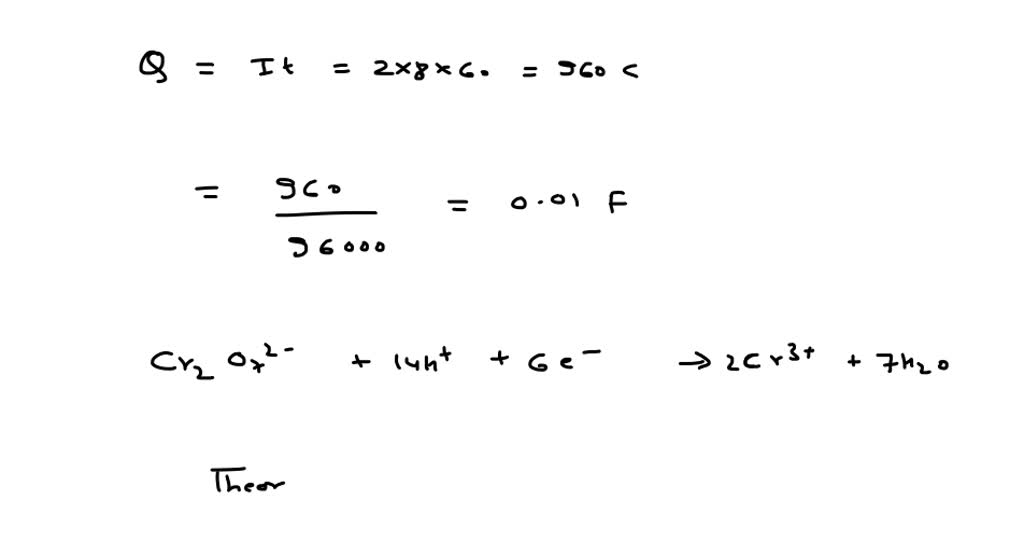 Q = It = 2×8×60 = 960 C
= 960/96000 = 0.01 F
Cr₂O₇²⁻ + 14H⁺ + 6e⁻ → 2Cr³⁺ + 7H₂O
Theor